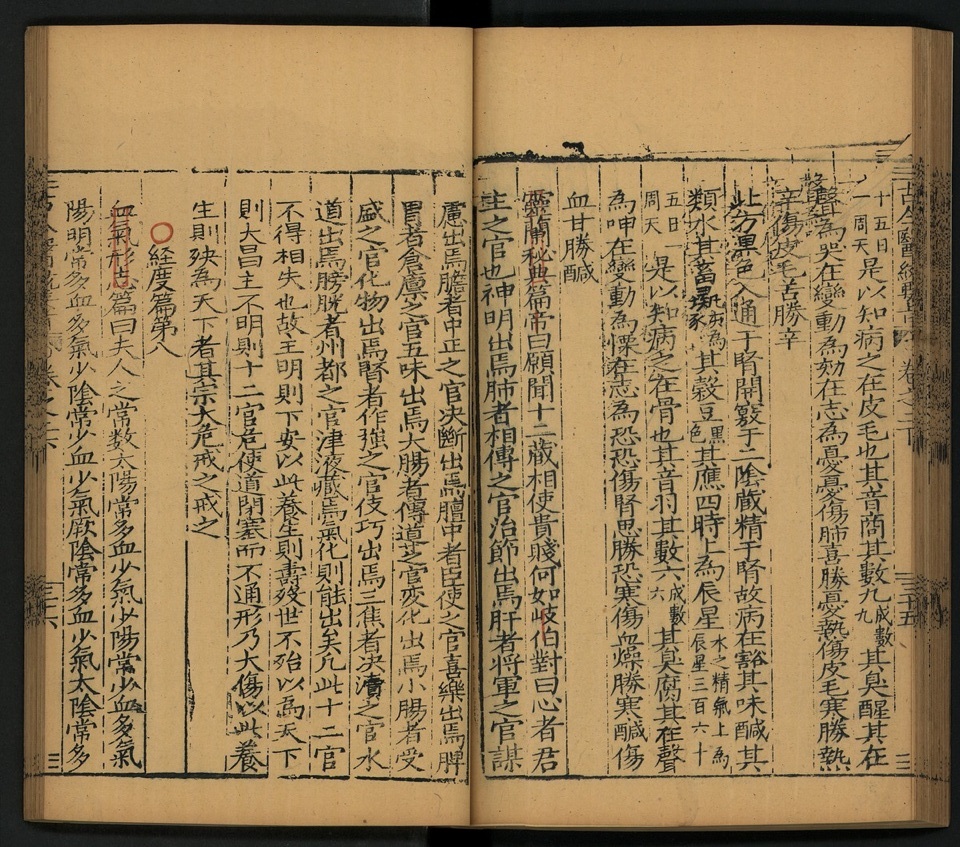 十五日
一周天是以知病之在皮毛也其音商其數九成數九其臭腥其在
聲為哭在變動為欬在志為憂憂傷肺喜勝憂熱傷皮毛寒勝熱
辛傷皮毛苦勝辛
北方黑色入通于腎開竅于二陰藏精于腎故病在谿其味醎其
類水其畜彘其穀豆黑色其應四時上為辰星水之精氣上為辰星三百六十
五日一周天是以知病之在骨也其音羽其數六成數六其臭腐其在聲
為呻在變動為慄在志為恐恐傷腎思勝恐寒傷血燥勝寒醎傷
血甘勝醎
靈蘭秘典篇帝曰願聞十二藏相使貴賤何如岐伯對曰心者君
主之官也神明出焉肺者相傳之官治節出焉肝者將軍之官謀
慮出焉膽者中正之官决斷出焉膻中者臣使之官喜樂出焉脾
胃者倉廩之官五味出焉大腸者傳道之官変化出焉小腸者受
盛之官化物出焉腎者作強之官伎巧出焉三焦者决瀆之官水
道出焉膀胱者州都之官津液藏焉氣化則能出矣凢此十二官
不得相失也故主明則下安以此養生則壽殁世不殆以為天下
則大昌主不明則十二官危使道閉塞而不通形乃大傷以此養
生則殃為天下者其宗大危戒之戒之
○經度篇第八
血氣形志篇曰夫人之常数太陽常多血少氣少陽常少血多氣
陽明常多血多氣少陰常少血少氣厥陰常多血少氣太陰常多